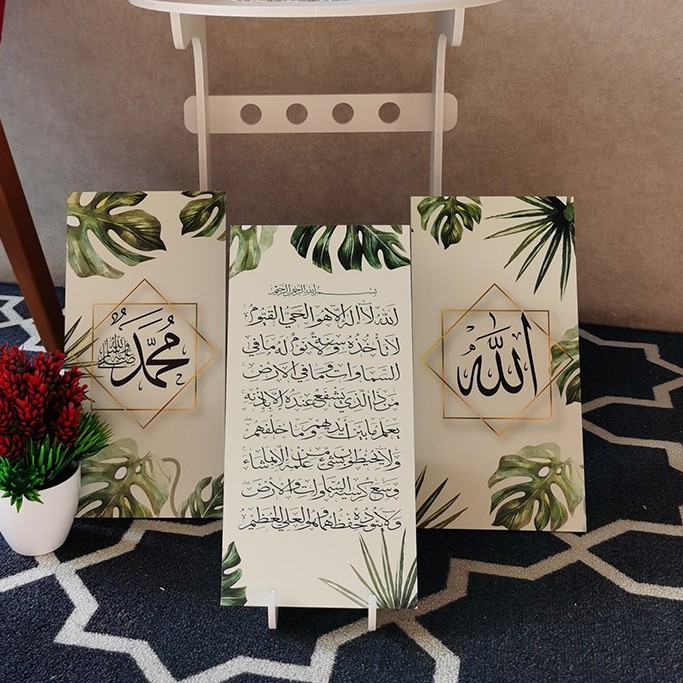 الله
بسم الله الرحمن الرحيم
الله لا اله الا هو الحي القيوم
لا تأخذه سنة ولا نوم له ما في
السماوات وما في الارض
من ذا الذي يشفع عنده الا باذنه
يعلم ما بين ايديهم وما خلفهم
ولا يحيطون بشئ من علمه الا بما شاء
وسع كرسيه السماوات والارض
ولا يئوده حفظهما وهو العلي العظيم
مُحَمَّد
صلى الله عليه وسلم